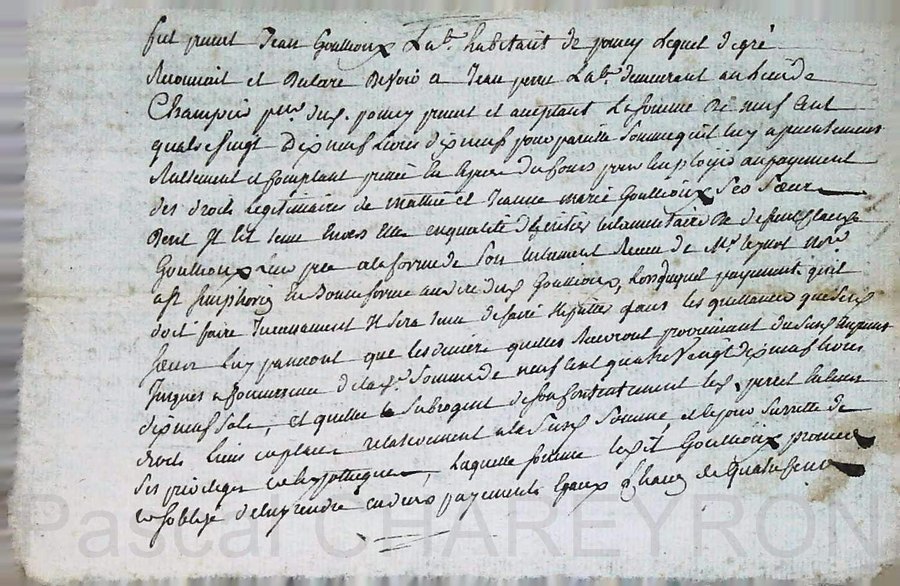 fut present Jean Goullioux Lab.r habitant de poncy Lequel de gré
Reconnait et Declare Devoir a Jean perret Lab.r demeurant au lieu de
Champoir p.sse dud. poncy present et acceptant La somme De neuf Cent
quatre vingt Dix neuf Livres dix neuf pour pareille Somme qu'il luy a presentement
Reellement et Comptant pretté en Especes de Cours pour Employer au payement
des droits Legitimaires de mathie et Jeanne marie Goullioux Ses Sœurs
Dont Il Est tenu Envers Elles en qualité d'heritier testamentaire De defunt
Goullioux leur pere a la forme de Son testament Receu de M.e not.re
a S.t Simphorien En bonne forme aud. Goullioux, Lors duquel payement qu'il
doit faire Incessamment Il Sera tenu de faire Repeter dans les quittances que Ses
sœurs Luy passeront que les deniers quelles Recevront proviennent du Susd. Emprunt
Jusques a Concurrence de lad. Somme de neuf Cent quatre Vingt dix neuf livres
dix neuf Sols, et quelles le Subrogent de Son Consentement led. perret En leurs
droits Lieux et places relativement a la Susd. Somme, et le jour Surrette de
Ses privileges et hypotheques, Laquelle somme led.it Goullioux promet
et s'oblige de luy rendre en deux payements Egaux
Pascal CHAREYRON